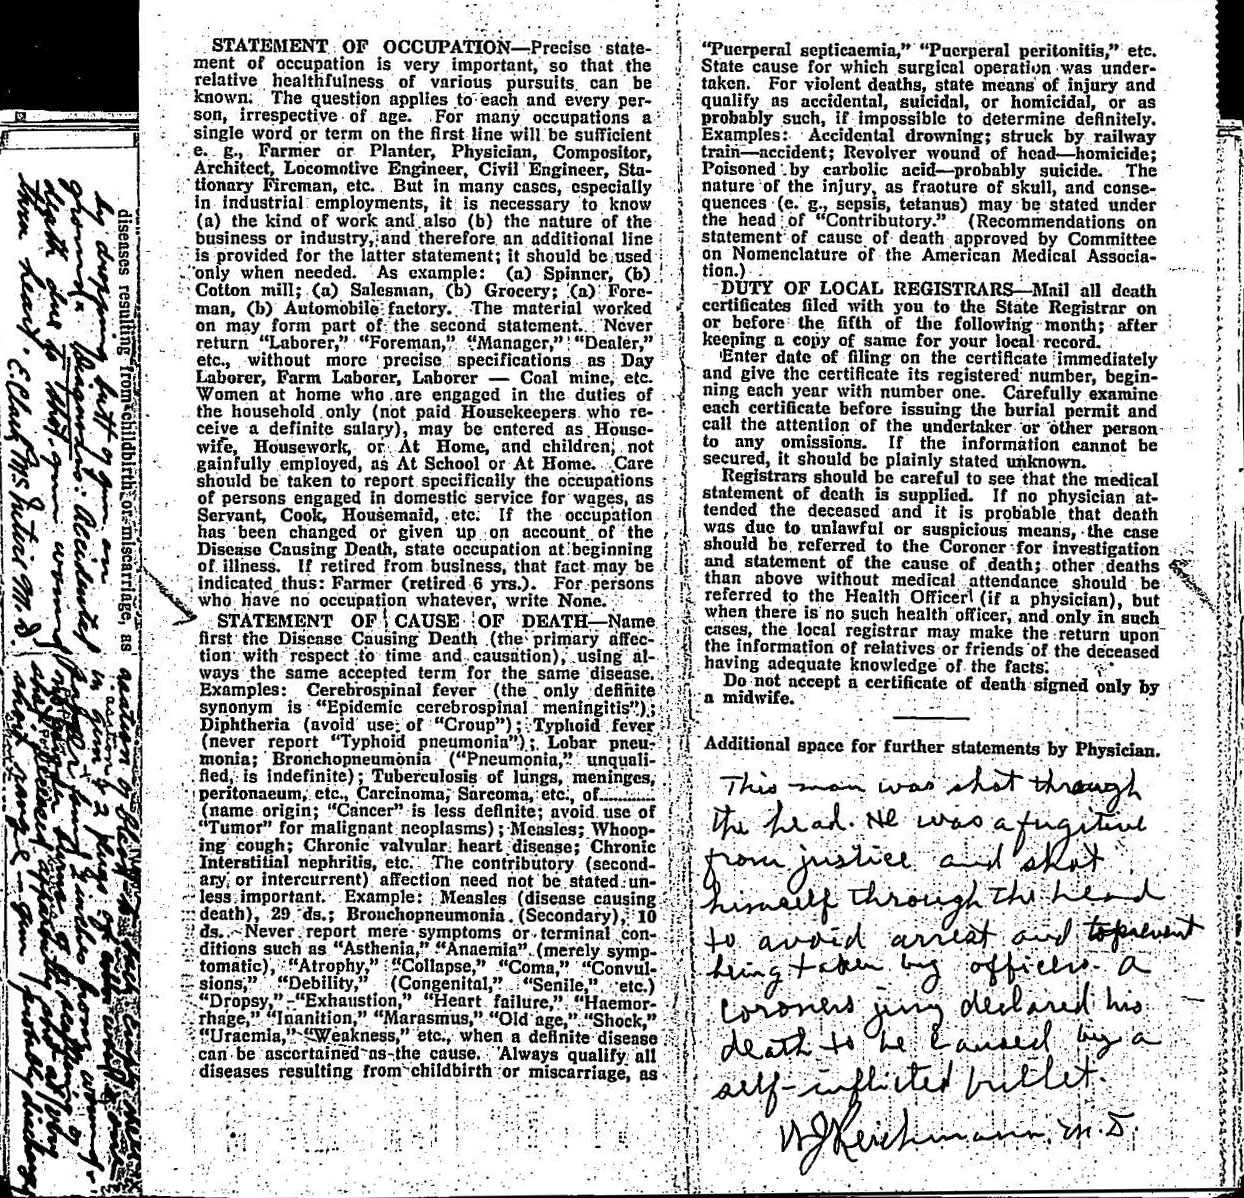 STATEMENT OF OCCUPATION—Precise state-
ment of occupation is very important, so that the
relative healthfulness of various pursuits can be
known. The question applies to each and every per-
son, irrespective of age. For many occupations a
single word or term on the first line will be sufficient
e. g., Farmer or Planter, Physician, Compositor,
Architect, Locomotive Engineer, Civil Engineer, Sta-
tionary Fireman, etc. But in many cases, especially
in industrial employments, it is necessary to know
(a) the kind of work and also (b) the nature of the
business or industry, and therefore an additional line
is provided for the latter statement; it should be used
only when needed. As example: (a) Spinner, (b)
Cotton mill; (a) Salesman, (b) Grocery; (a) Fore-
man, (b) Automobile factory. The material worked
on may form part of the second statement. Never
return "Laborer," "Foreman," "Manager," "Dealer,"
etc., without more precise specifications as Day
Laborer, Farm Laborer, Laborer — Coal mine, etc.
Women at home who are engaged in the duties of
the household only (not paid Housekeepers who re-
ceive a definite salary), may be entered as House-
wife, Housework, or At Home, and children, not
gainfully employed, as At School or At Home. Care
should be taken to report specifically the occupations
of persons engaged in domestic service for wages, as
Servant, Cook, Housemaid, etc. If the occupation
has been changed or given up on account of the
Disease Causing Death, state occupation at beginning
of illness. If retired from business, that fact may be
indicated thus: Farmer (retired 6 yrs.). For persons
who have no occupation whatever, write None.
STATEMENT OF CAUSE OF DEATH—Name
first the Disease Causing Death (the primary affec-
tion with respect to time and causation), using al-
ways the same accepted term for the same disease.
Examples: Cerebrospinal fever (the only definite
synonym is "Epidemic cerebrospinal meningitis");
Diphtheria (avoid use of "Croup"); Typhoid fever
(never report "Typhoid pneumonia"); Lobar pneu-
monia; Bronchopneumonia ("Pneumonia," unquali-
fied, is indefinite); Tuberculosis of lungs, meninges,
peritonaeum, etc., Carcinoma, Sarcoma, etc., of............
(name origin; "Cancer" is less definite; avoid use of
"Tumor" for malignant neoplasms); Measles; Whoop-
ing cough; Chronic valvular heart disease; Chronic
Interstitial nephritis, etc. The contributory (second-
ary or intercurrent) affection need not be stated un-
less important. Example: Measles (disease causing
death), 29 ds.; Bronchopneumonia (Secondary), 10
ds. Never report mere symptoms or terminal con-
ditions such as "Asthenia," "Anaemia" (merely symp-
tomatic), "Atrophy," "Collapse," "Coma," "Convul-
sions," "Debility," (Congenital," "Senile," etc.)
"Dropsy," "Exhaustion," "Heart failure," "Haemor-
rhage," "Inanition," "Marasmus," "Old age," "Shock,"
"Uraemia," "Weakness," etc., when a definite disease
can be ascertained as the cause. Always qualify all
diseases resulting from childbirth or miscarriage, as
"Puerperal septicaemia," "Puerperal peritonitis," etc.
State cause for which surgical operation was under-
taken. For violent deaths, state means of injury and
qualify as accidental, suicidal, or homicidal, or as
probably such, if impossible to determine definitely.
Examples: Accidental drowning; struck by railway
train—accident; Revolver wound of head—homicide;
Poisoned by carbolic acid—probably suicide. The
nature of the injury, as fraoture of skull, and conse-
quences (e. g., sepsis, tetanus) may be stated under
the head of "Contributory." (Recommendations on
statement of cause of death approved by Committee
on Nomenclature of the American Medical Associa-
tion.)
DUTY OF LOCAL REGISTRARS—Mail all death
certificates filed with you to the State Registrar on
or before the fifth of the following month; after
keeping a copy of same for your local record.
Enter date of filing on the certificate immediately
and give the certificate its registered number, begin-
ning each year with number one. Carefully examine
each certificate before issuing the burial permit and
call the attention of the undertaker or other person
to any omissions. If the information cannot be
secured, it should be plainly stated unknown.
Registrars should be careful to see that the medical
statement of death is supplied. If no physician at-
tended the deceased and it is probable that death
was due to unlawful or suspicious means, the case
should be referred to the Coroner for investigation
and statement of the cause of death; other deaths
than above without medical attendance should be
referred to the Health Officer (if a physician), but
when there is no such health officer, and only in such
cases, the local registrar may make the return upon
the information of relatives or friends of the deceased
having adequate knowledge of the facts.
Do not accept a certificate of death signed only by
a midwife.
Additional space for further statements by Physician.
This man was shot through
the head. He was a fugitive
from justice and shot
himself through the head
to avoid arrest and to prevent
being taken by officers. A
coroners jury declared his
death to be caused by a
self-inflicted bullet.
M.D.
diseases resulting from childbirth or miscarriage, as
by dropping butt of gun on
ground. Diagnosis: Accidental
death due to shot-gun wound
thru heart.
M.D.